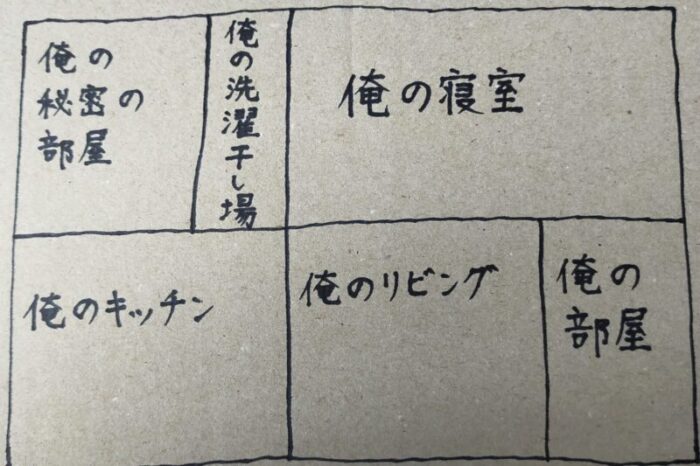 俺の
秘密の
部屋
俺の洗濯干し場
俺の寝室
俺のキッチン
俺のリビング
俺の
部屋